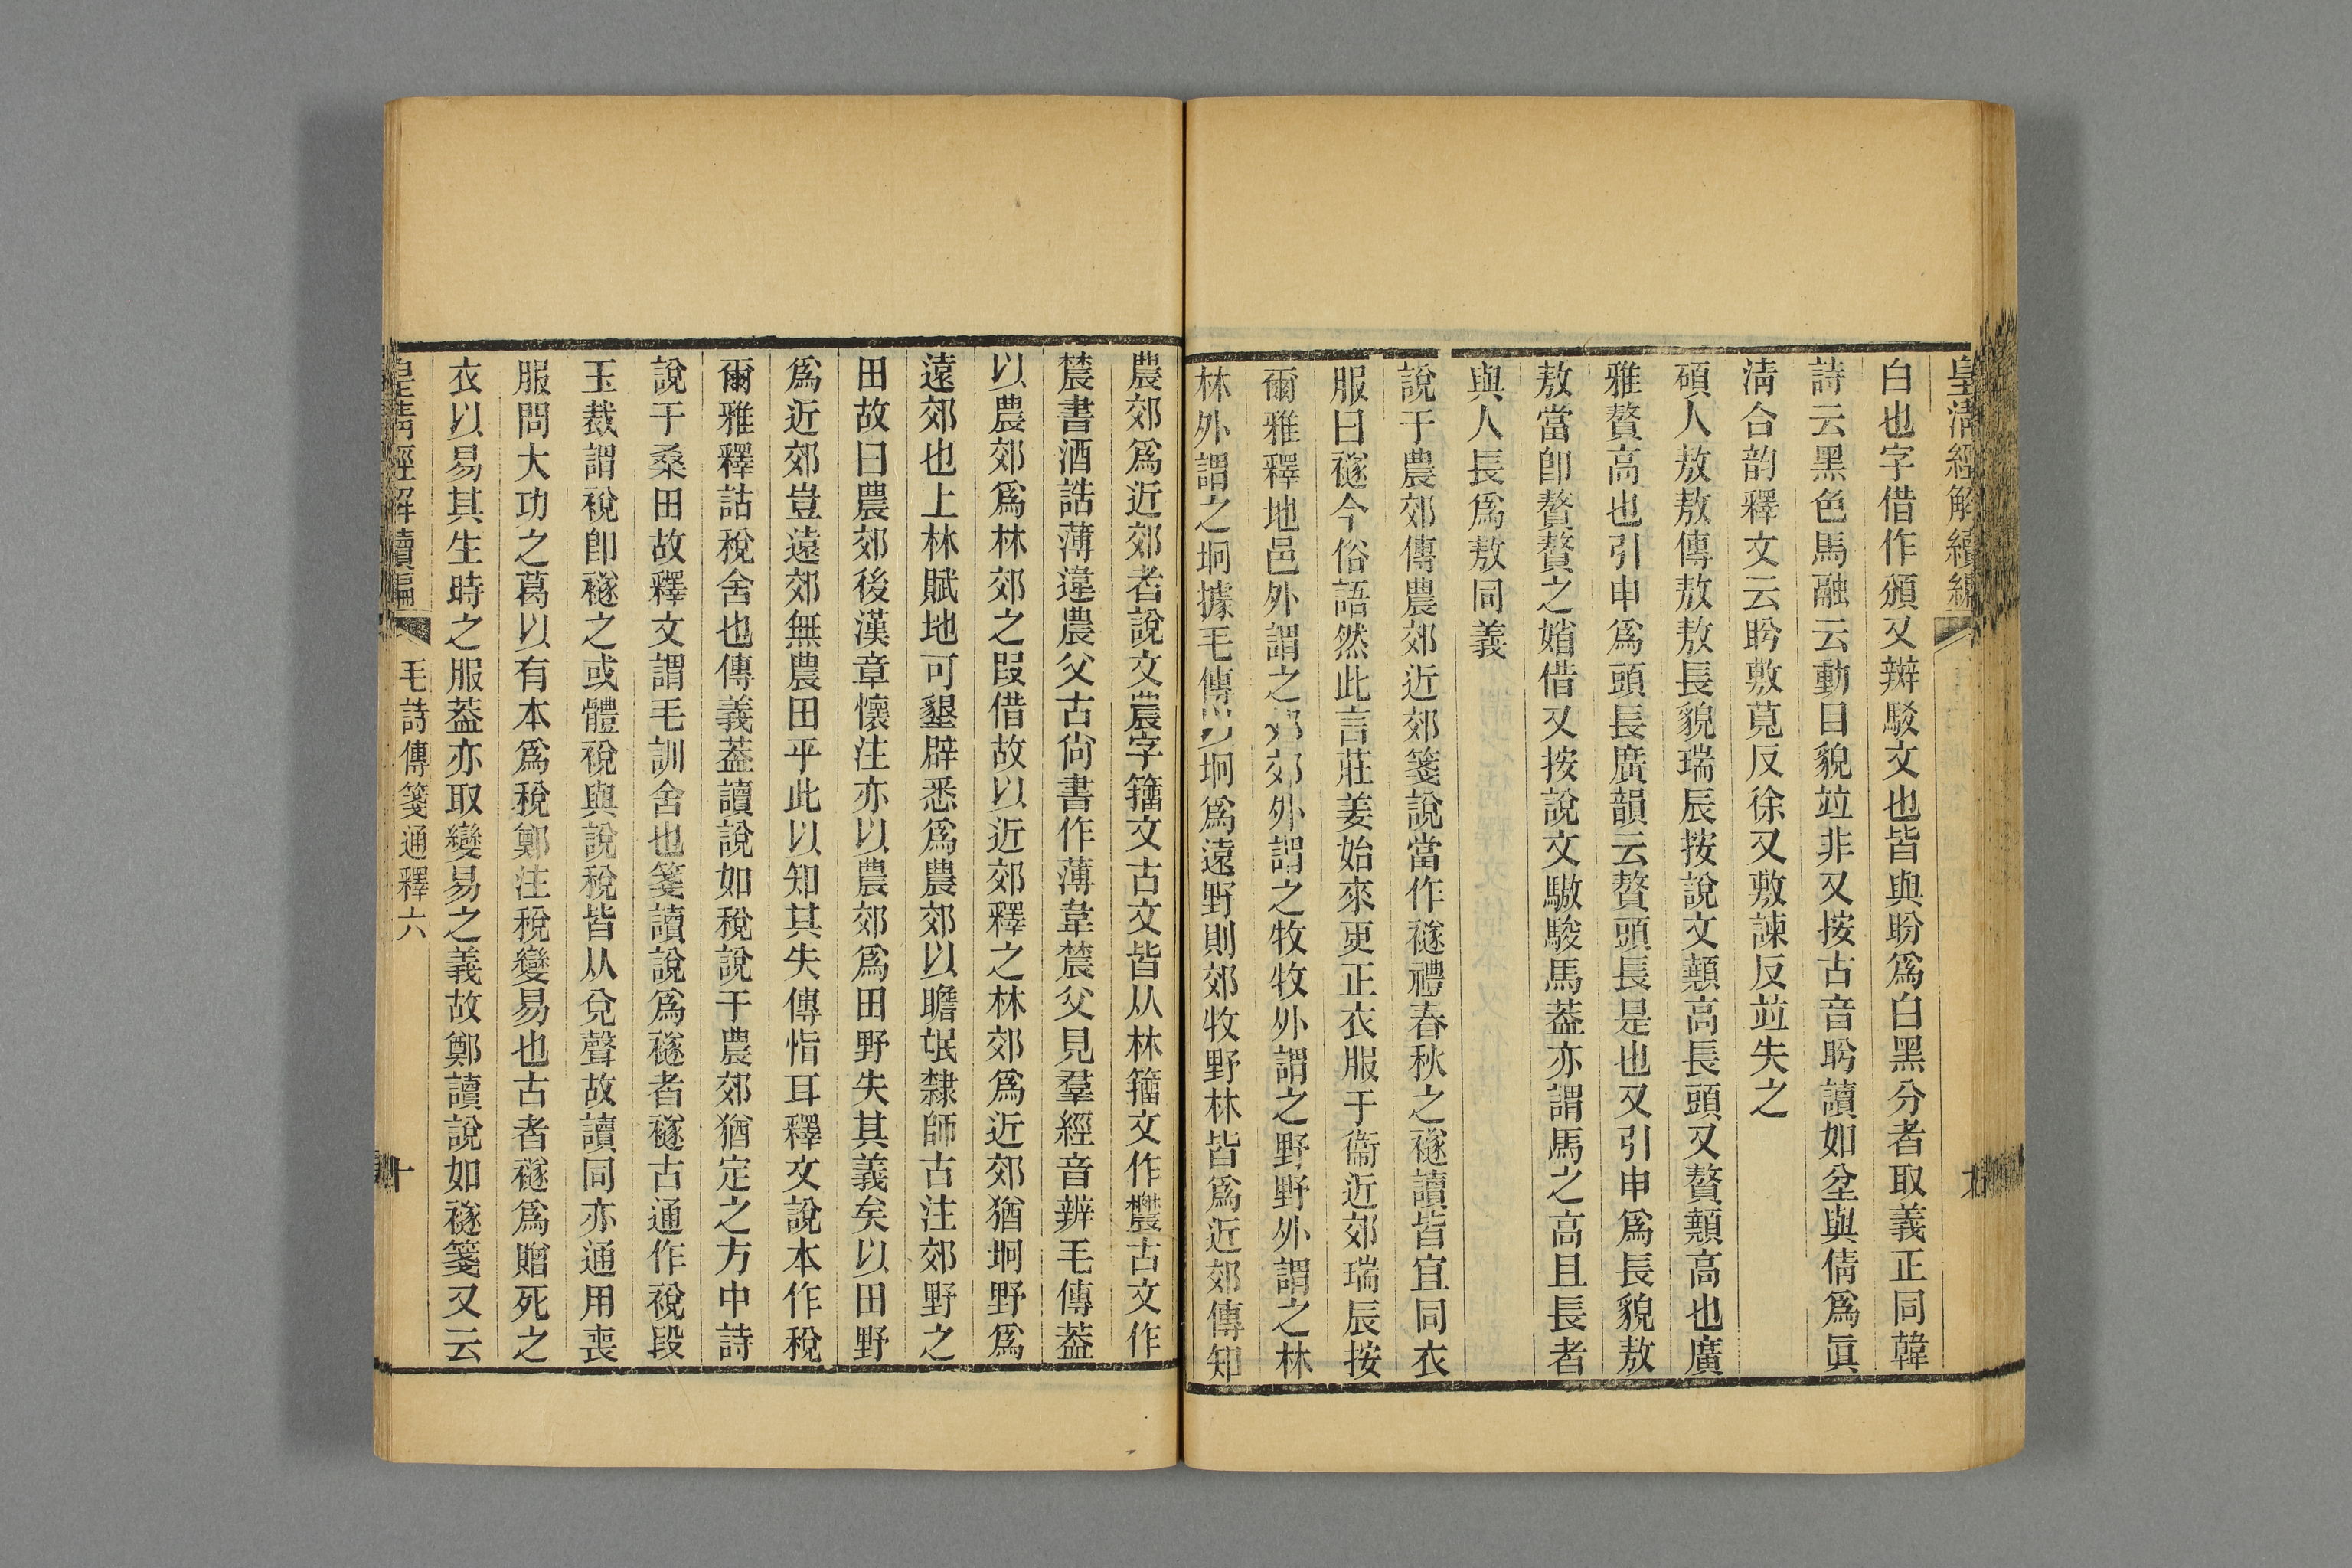 皇清經解續編
九
白也字借作頒又辬駁文也皆與盼爲白黑分者取義正同韓
詩云黑色馬融云動目貌竝非又按古音盼讀如坌與倩爲眞
淸合韵釋文云盼敷莧反徐又敷諫反竝失之
碩人敖敖傳敖敖長貌瑞辰按說文顤高長頭又贅顤高也廣
雅贅高也引申爲頭長廣韻云贅頭長是也又引申爲長貌敖
敖當卽贅贅之媘借又按說文驐駿馬葢亦謂馬之高且長者
與人長爲敖同義
說于農郊傳農郊近郊箋說當作襚禮春秋之襚讀皆宜同衣
服曰襚今俗語然此言莊姜始來更正衣服于衞近郊瑞辰按
爾雅釋地邑外謂之郊郊外謂之牧牧外謂之野野外謂之林
林外謂之坰據毛傳以坰爲遠野則郊牧野林皆爲近郊傳知
農郊爲近郊者說文農字籒文古文皆从林籒文作𦦥古文作
䢉書酒誥薄違農父古尙書作薄韋䢉父見羣經音辨毛傳葢
以農郊爲林郊之叚借故以近郊釋之林郊爲近郊猶坰野爲
遠郊也上林賦地可墾辟悉爲農郊以贍氓隸師古注郊野之
田故曰農郊後漢章懷注亦以農郊爲田野失其義矣以田野
爲近郊豈遠郊無農田乎此以知其失傳恉耳釋文說本作稅
爾雅釋詁稅舍也傳義葢讀說如稅說于農郊猶定之方中詩
說于桑田故釋文謂毛訓舍也箋讀說爲襚者襚古通作裞段
玉裁謂裞卽襚之或體裞與說稅皆从兌聲故讀同亦通用喪
服問大功之葛以有本爲稅鄭注稅變易也古者襚爲贈死之
衣以易其生時之服葢亦取變易之義故鄭讀說如襚箋又云
皇淸經解續編
毛詩傳箋通釋六
十